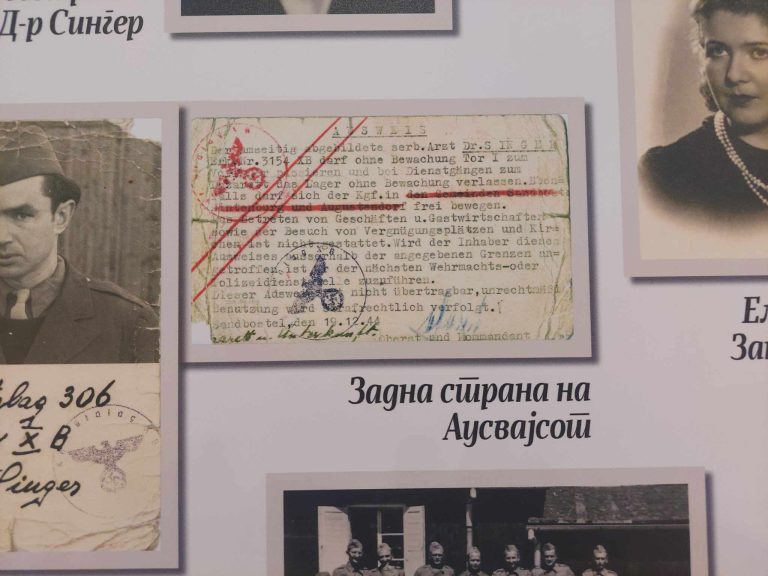 Д-р Сингер
AUSWEIS
Der umseitig abgebildete serb.Arzt Dr.SINGER
Erk.Nr.3154 XB darf ohne Bewachung Tor I zum
passieren und bei Dienstgängen zum
Lazarett das Lager ohne Bewachung verlassen.Eben
falls darf sich der Kgf.in den Gemeinden Sandbostel
und Augustendorf frei bewegen.
Das Betreten von Geschäften u.Gastwirtschaften
sowie der Besuch von Vergnügungsplätzen und Kir-
chen ist nicht gestattet.Wird der Inhaber dieses
Ausweises ausserhalb der angegebenen Grenzen an-
getroffen ist der nächsten Wehrmachts-oder
Polizeidienststelle zuzuführen.
Dieser nicht übertragbar,unrechtmäß
Benutzung wird strafrechtlich verfolgt.
Sandbostel,den 19.12.44
u. Unterkunft.
Oberst und Kommandant
306
X B
Singer
Задна страна на
Аусвајсот